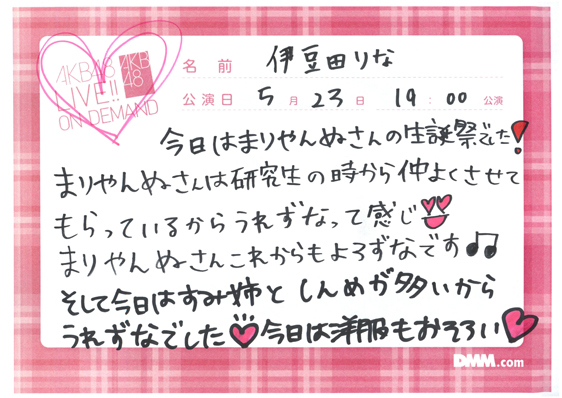 AKB48
LIVE!!
ON DEMAND
AKB
48
名前 伊豆田りな
公演日 5月23日 19:00公演
今日はまりやんぬさんの生誕祭でした!
まりやんぬさんは研究生の時から仲よくさせて
もらっているからうれずなって感じ
まりやんぬさんこれからもよろずなです♫
そして今日はすみ姉としんめが多いから
うれずなでした♡今日は洋服もおそろい♡
DMM.com